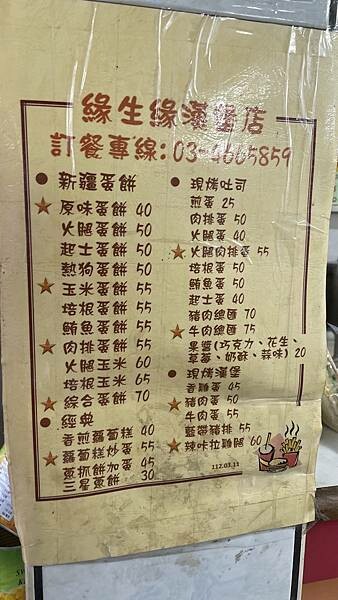 緣生緣漢堡店
訂餐專線:03-4665859
● 新疆蛋餅
★ 原味蛋餅 40
火腿蛋餅 50
起士蛋餅 50
熱狗蛋餅 50
★ 玉米蛋餅 55
培根蛋餅 55
鮪魚蛋餅 55
★ 肉排蛋餅 55
火腿玉米 60
培根玉米 65
★ 綜合蛋餅 70
● 經典
香煎蘿蔔糕 40
★ 蘿蔔糕炒蛋 55
蔥抓餅加蛋 45
三星蔥餅 30
● 現烤吐司
煎蛋 25
肉排蛋 50
火腿蛋 40
★ 火腿肉排蛋 55
培根蛋 50
鮪魚蛋 50
起士蛋 40
豬肉總匯 70
★ 牛肉總匯 75
果醬(巧克力、花生、
草莓、奶酥、蒜味) 20
● 現烤漢堡
香雞蛋 45
★ 豬肉蛋 50
牛肉蛋 55
藍帶豬排 55
★ 辣味拉雞腿 60
112.03.11